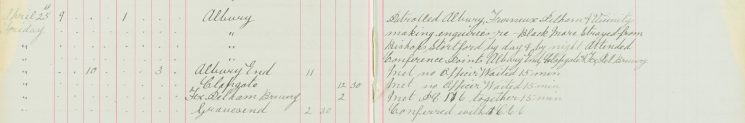 April 25th 9 1 Albury Patrolled Albury, Furneux Pelham & Vicinity
Sunday " making enquiries re Black Mare Strayed from
" " Bishops Stortford by day & by night Attended
" " Conference Points Albury End, Clapgate & Fox Pel. Bruwy
" 10 3 Albury End 11 Met no Officer Waited 15 min
" Clapgate 12 30 Met no Officer Waited 15 min
" Fox Pelham Bruwy 2 Met P.C. 116 together 15 min
" Gravesend 2 30 Conferred with